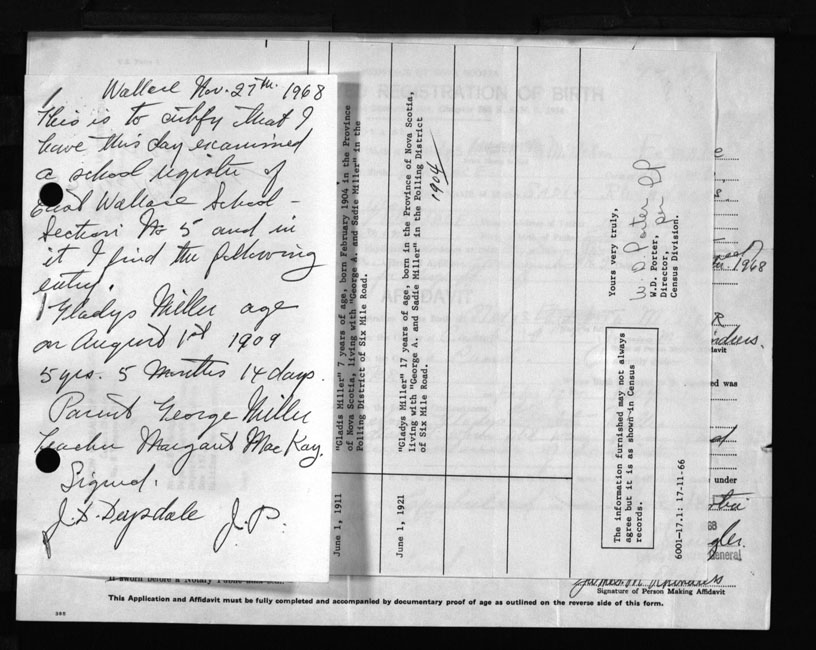 Wallace Nov. 27th 1968
This is to certify that I
have this day examined
a school register of
East Wallace School -
Section No 5 and in
it I find the following
entry.
Gladys Miller age
on August 1st 1909
5 yrs. 5 Months 14 days.
Parent George Miller
Teacher Margaret MacKay.
Signed.
J.D. Drysdale J.P.
June 1, 1911
"Gladis Miller" 7 years of age, born February 1904 in the Province
of Nova Scotia, living with "George A. and Sadie Miller" in the
Polling District of Six Mile Road.
June 1, 1921
"Gladys Miller" 17 years of age, born in the Province of Nova Scotia,
living with "George A. and Sadie Miller" in the Polling District
of Six Mile Road.
1904
Yours very truly,
W. D. Porter
W.D. Porter,
Director,
Census Division.
The information furnished may not always
agree but it is as shown in Census
records.
6001-17.1: 17-11-66
REGISTRATION OF BIRTH
AFFIDAVIT
1968
davit
ed was
under
General
Signature of Person Making Affidavit
This Application and Affidavit must be fully completed and accompanied by documentary proof of age as outlined on the reverse side of this form.